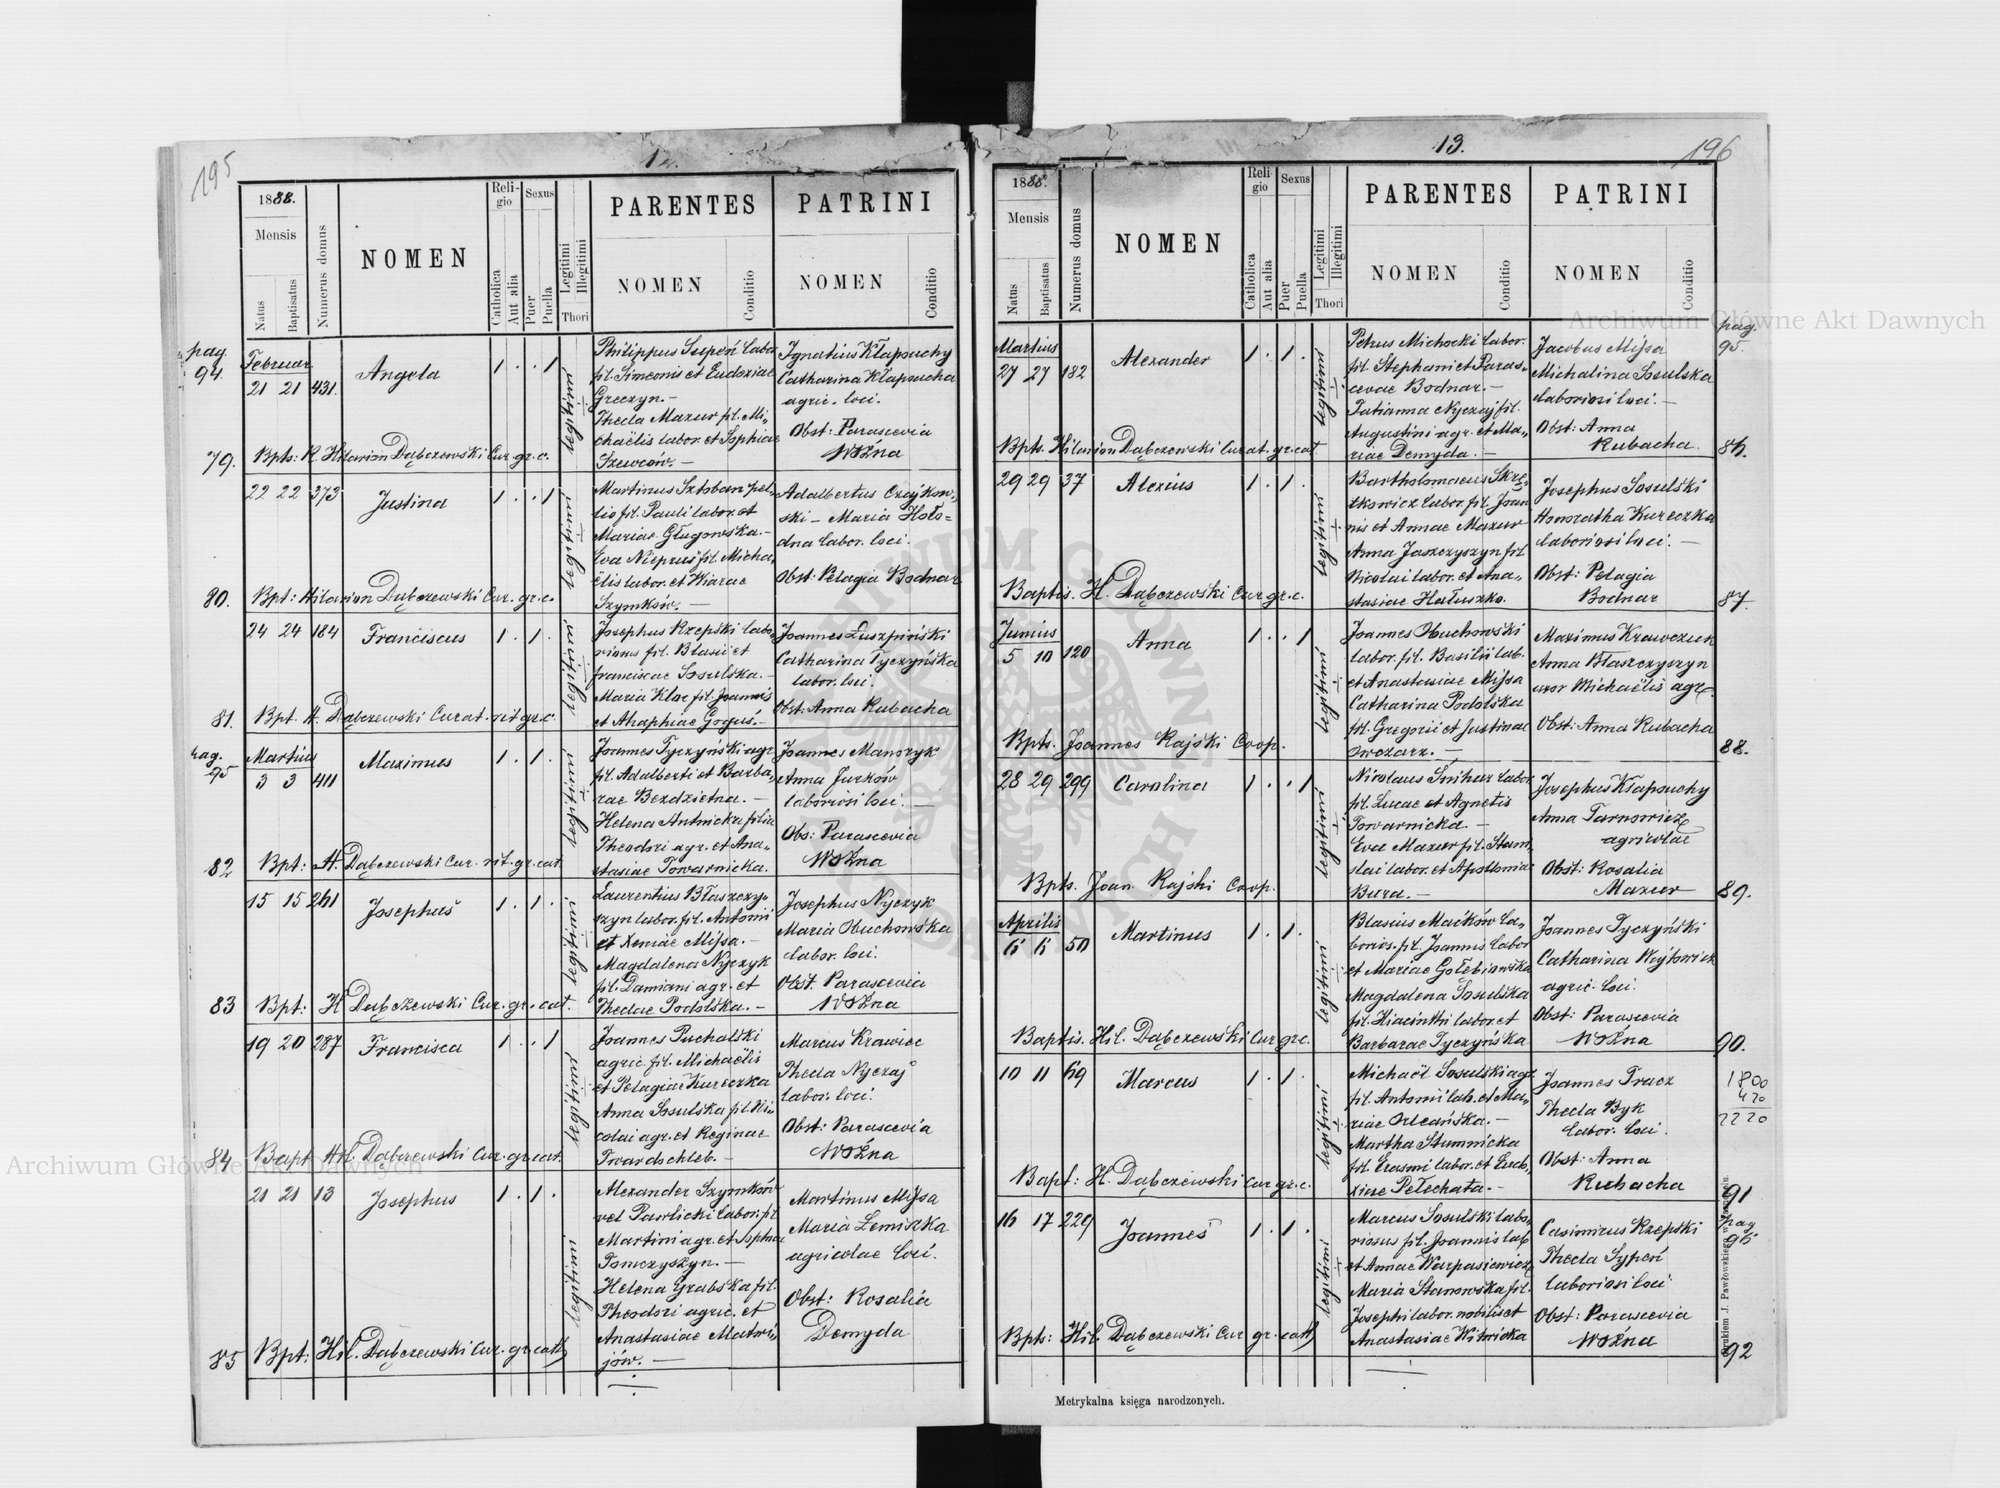 195
12.
1888.
Mensis
Natus
Baptisatus
Numerus domus
NOMEN
Religio
Catholica
Aut alia
Sexus
Puer
Puella
Legitimi
Illegitimi
Thori
PARENTES
NOMEN
Conditio
PATRINI
NOMEN
Conditio
pag. 94.
Februar
21 21 431. Angela 1 . . 1
legitimi
Philippus Supeń labor
fil. Simeonis et Eudoxiae
Greczyn. —
Thecla Mazur fil. Mi„
chaëlis labor. et Sophiae
Szewców. —
Ignatius Kłapouchy
Catharina Kłapoucha
agric. loci.
Obst: Parascevia
Woźna
79. Bpts: R. Hilarion Dąbczewski Cur. gr. c.
22 22 373 Justina 1 . . 1
legitimi
Martinus Sztoban pel„
lio fil. Pauli labor. et
Mariae Gługowska. —
Eva Nieprus fil. Micha„
ëlis labor. et Mariae
Szymków. —
Adalbertus Czajkow„
ski — Maria Hoło=
dna labor. loci.
Obst: Pelagia Bodnar
80. Bpt: Hilarion Dąbczewski Cur. gr. c.
24 24 184 Franciscus 1 . 1 .
legitimi
Josephus Rzepski labo„
riosus fil. Blasii et
Franciscae Sosulska. —
Maria Kloc fil. Joannis
et Ahaphiae Goguś. —
Joannes Łuszpiński
Catharina Tyczyńska
labor. loci.
Obst: Anna Rubacha
81. Bpt. H. Dąbczewski Curat. rit gr. c.
pag. 95
Martius
3 3 411 Maximus 1 . 1 .
legitimi
Joannes Tyczyński agr
fil. Adalberti et Barba„
rae Bezdzietna. —
Helena Antnicka filia
Theodori agr. et Ana„
stasiae Towarnicka.
Joannes Manszyk
Anna Jurków
laboriosi loci. —
Obs: Parascevia
Woźna
82 Bpt: H. Dąbczewski Cur. rit. gr. cat.
15 15 261 Josephus 1 . 1 .
legitimi
Laurentius Błaszczy„
szyn labor. fil. Antonii
et Xeniae Missa. —
Magdalena Nyczyk
fil. Damiani agr. et
Theclae Podolska. —
Josephus Nyczyk
Maria Obuchowska
labor. loci.
Obst. Parascevia
Woźna
83 Bpt: H Dąbczewski Cur. gr. cat.
19 20 287 Francisca 1 . . 1
legitimi
Joannes Puchalski
agric. fil. Michaëlis
et Pelagiae Kureczka
Anna Sosulska fil. Ni„
colai agr. et Reginae
Twardochleb. —
Marcus Krawiec
Thecla Nyczaj
labor. loci.
Obst: Parascevia
Woźna
84 Bapt Hil. Dąbczewski Cur. gr. cat.
21 21 13 Josephus 1 . 1 .
legitimi
Alexander Szymków
vel Pawlicki labor. fil.
Martini agr. et Sophiae
Tomczyszyn. —
Helena Grabska fil.
Theodori agric. et
Anastasiae Matwi„
jów. —
Martinus Missa
Maria Lemiszka
agricolae loci.
Obst: Rosalia
Demyda
85 Bpt: Hil. Dąbczewski Cur. gr. cath
196
13.
1888.
Mensis
Natus
Baptisatus
Numerus domus
NOMEN
Religio
Catholica
Aut alia
Sexus
Puer
Puella
Legitimi
Illegitimi
Thori
PARENTES
NOMEN
Conditio
PATRINI
NOMEN
Conditio
pag. 95.
Martius
27 27 182 Alexander 1 . 1 .
legitimi
Petrus Michocki labor.
fil. Stephani et Paras„
cevae Bodnar. —
Tatianna Nyczaj fil.
Augustini agr. et Ma„
riae Demyda. —
Jacobus Missa
Michalina Sosulska
laboriosi loci. —
Obst: Anna
Rubacha.
Bpts. Hilarion Dąbczewski Curat. gr. cat. 86.
29 29 37 Alexius 1 . 1 .
legitimi
Bartholomaeus Skrze„
tkowicz labor. fil. Joan
nis et Annae Mazur
Anna Jaszczyszyn fil.
Nicolai labor. et Ana„
stasiae Hałuszko.
Josephus Sosulski
Honoratha Kureczka
laboriosi loci. —
Obst: Pelagia
Bodnar
Baptis. H. Dąbczewski Cur gr. c. 87.
Junius
5 10 120 Anna 1 . . 1
legitimi
Joannes Obuchowski
labor. fil. Basilii lab.
et Anastasiae Missa
Catharina Podolska
fil. Gregorii et Justinae
Owczarz. —
Maximus Krawczuk
Anna Błaszczyszyn
uxor Michaëlis agr.
Obst: Anna Rubacha
Bpts. Joannes Rajski Coop. 88.
28 29 299 Carolina 1 . . 1
legitimi
Nicolaus Śnihur labor
fil. Lucae et Agnetis
Towarnicka. —
Eva Mazur fil. Stani„
slai labor. et Apolloniae
Bura. —
Josephus Kłapouchy
Anna Tarnowicz
agricolae
Obst: Rosalia
Mazur
Bpts. Joan. Rajski Coop. 89.
Aprilis
6 6 50 Martinus 1 . 1 .
legitimi
Blasius Maćków la„
borios. fil. Joannis labor
et Mariae Gołębiowska
Magdalena Sosulska
fil. Hiacinthi labor. et
Barbarae Tyczyńska
Joannes Tyczyński
Catharina Wojtowicz
agric. loci.
Obst: Parascevia
Woźna
Baptis. Hil. Dąbczewski Cur gr c. 90.
10 11 69 Marcus 1 . 1 .
legitimi
Michaël Sosulski agr
fil. Antoni lab. et Ma„
riae Orleańska. —
Martha Stumnicka
fil. Erasmi labor. et Eudo„
xiae Pełechata. —
Joannes Tracz
Thecla Byk
labor. loci.
Obst: Anna
Rubacha
1800
420
2220
Bapt: H. Dąbczewski Cur gr. c. 91
16 17 229 Joannes 1 . 1 .
legitimi
Marcus Sosulski labo„
riosus fil. Joannis lab
et Annae Warpasiewicz
Maria Stanowska fil.
Josephi labor. nobilis et
Anastasiae Witwicka
Casimirus Rzepski
Thecla Sypeń
laboriosi loci
Obst: Parascevia
Woźna
pag 96
Bpts: Hil. Dąbczewski Cur gr. cath 92
Metrykalna księga narodzonych.
Archiwum Główne Akt Dawnych
Archiwum Główne Akt Dawnych